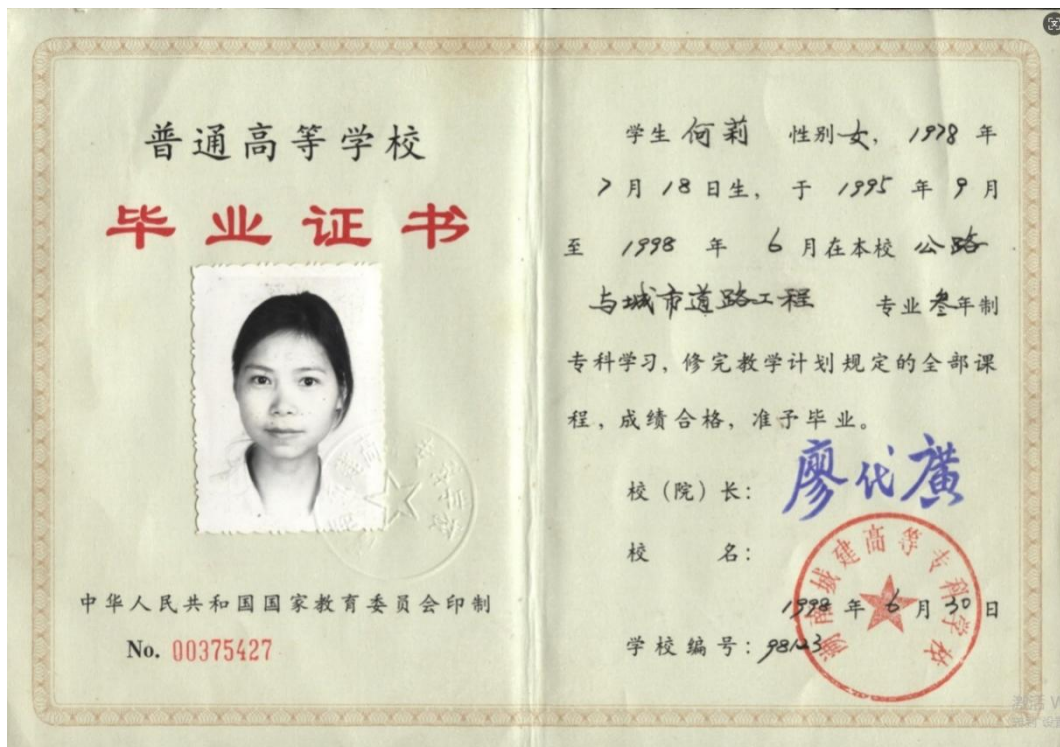 普通高等学校
毕业证书
中华人民共和国国家教育委员会印制
No. 00375427
学生 何莉 性别 女, 1978 年
7 月 18 日生, 于 1995 年 9 月
至 1998 年 6 月在本校 公路
与城市道路工程 专业 叁年制
专科学习, 修完教学计划规定的全部课
程, 成绩合格, 准予毕业。
校(院)长: 廖代广
校 名:
湖南城建高等专科学校
1998 年 6 月 30 日
学校编号: 98123